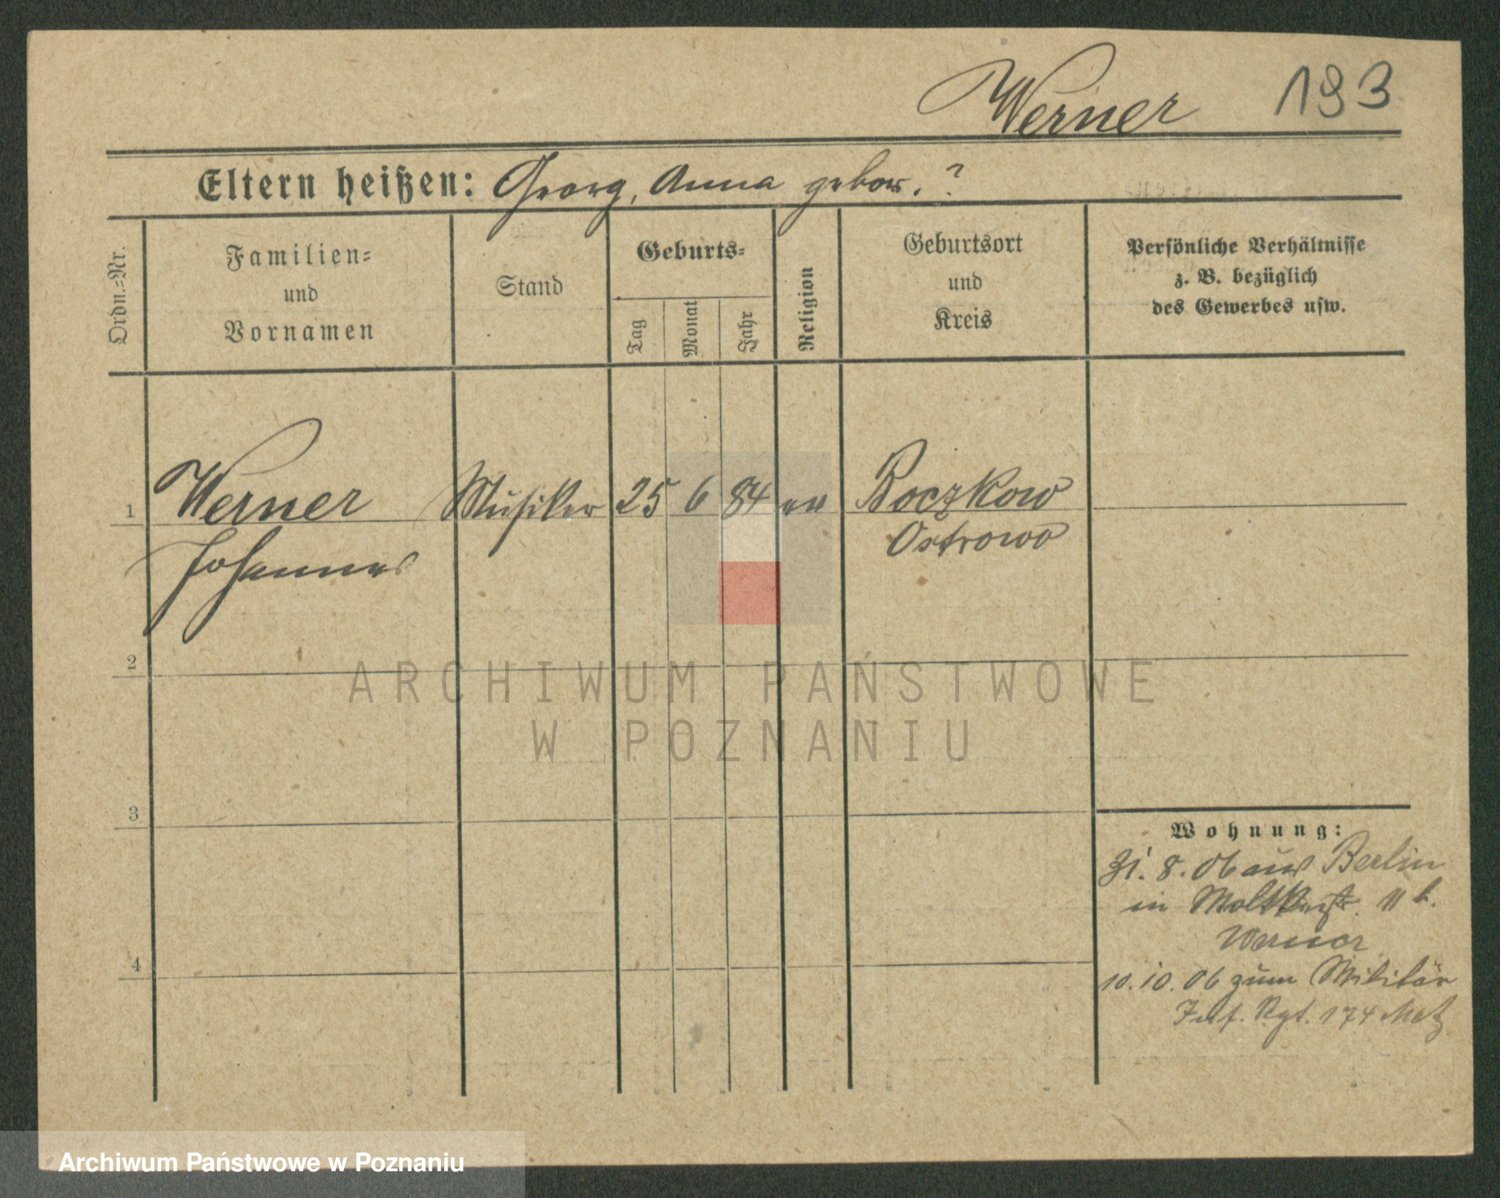 Werner 193
Eltern heißen: Georg, Anna gebor. ?
Ordn.=Nr.
Familien=
und
Vornamen
Stand
Geburts=
Tag
Monat
Jahr
Religion
Geburtsort
und
Kreis
Persönliche Verhältnisse
z. B. bezüglich
des Gewerbes usw.
1 Werner Musiker 25 6 84 ev Boczkow
Johannes Ostrowo
2
3
4
Wohnung:
31. 8. 06 aus Berlin
in Moltkestr. 11 b.
Werner
10. 10. 06 zum Militär
Inf. Rgt. 174 Metz
ARCHIWUM PAŃSTWOWE
W POZNANIU
Archiwum Państwowe w Poznaniu